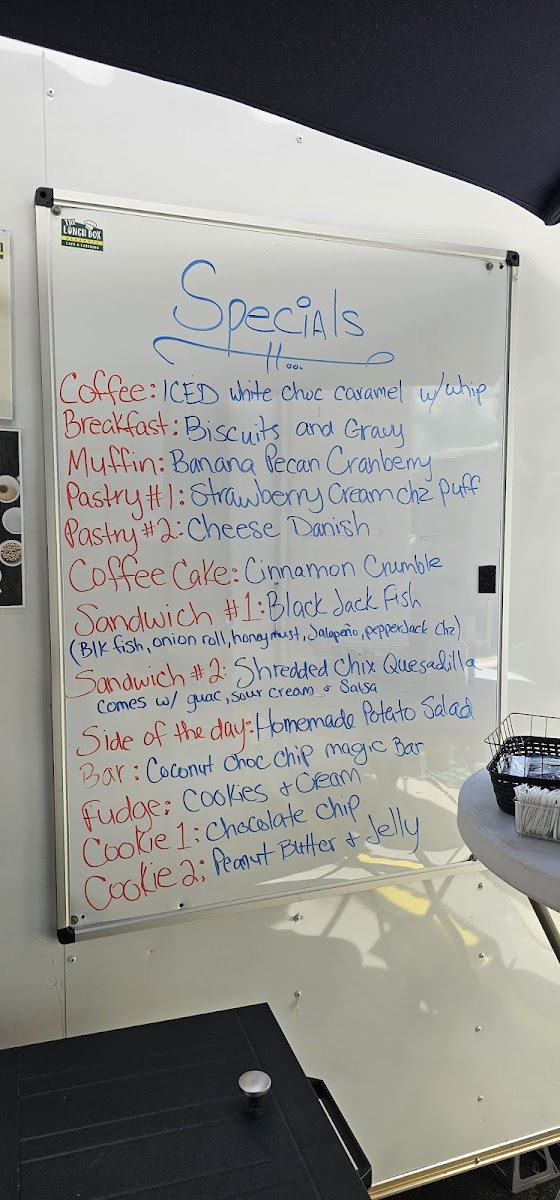 THE
LUNCH BOX
CAFE & CATERING
Specials
Coffee: ICED white choc caramel w/whip
Breakfast: Biscuits and Gravy
Muffin: Banana Pecan Cranberry
Pastry #1: Strawberry Cream chz puff
Pastry #2: Cheese Danish
Coffee Cake: Cinnamon Crumble
Sandwich #1: Black Jack Fish
(Blk fish, onion roll, honey must, Jalapeño, pepperJack chz)
Sandwich #2: Shredded Chix Quesadilla
comes w/ guac, sour cream & Salsa
Side of the day: Homemade Potato Salad
Bar: Coconut choc chip magic Bar
Fudge: Cookies & Cream
Cookie 1: Chocolate chip
Cookie 2: Peanut Butter & Jelly